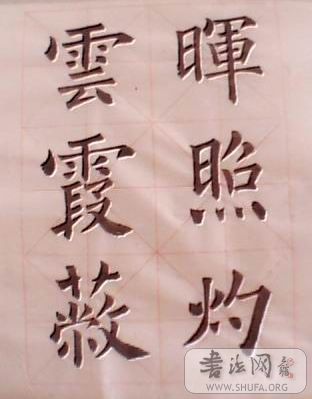 暉照灼
雲霞蔽
書法网
WWW.SHUFA.ORG